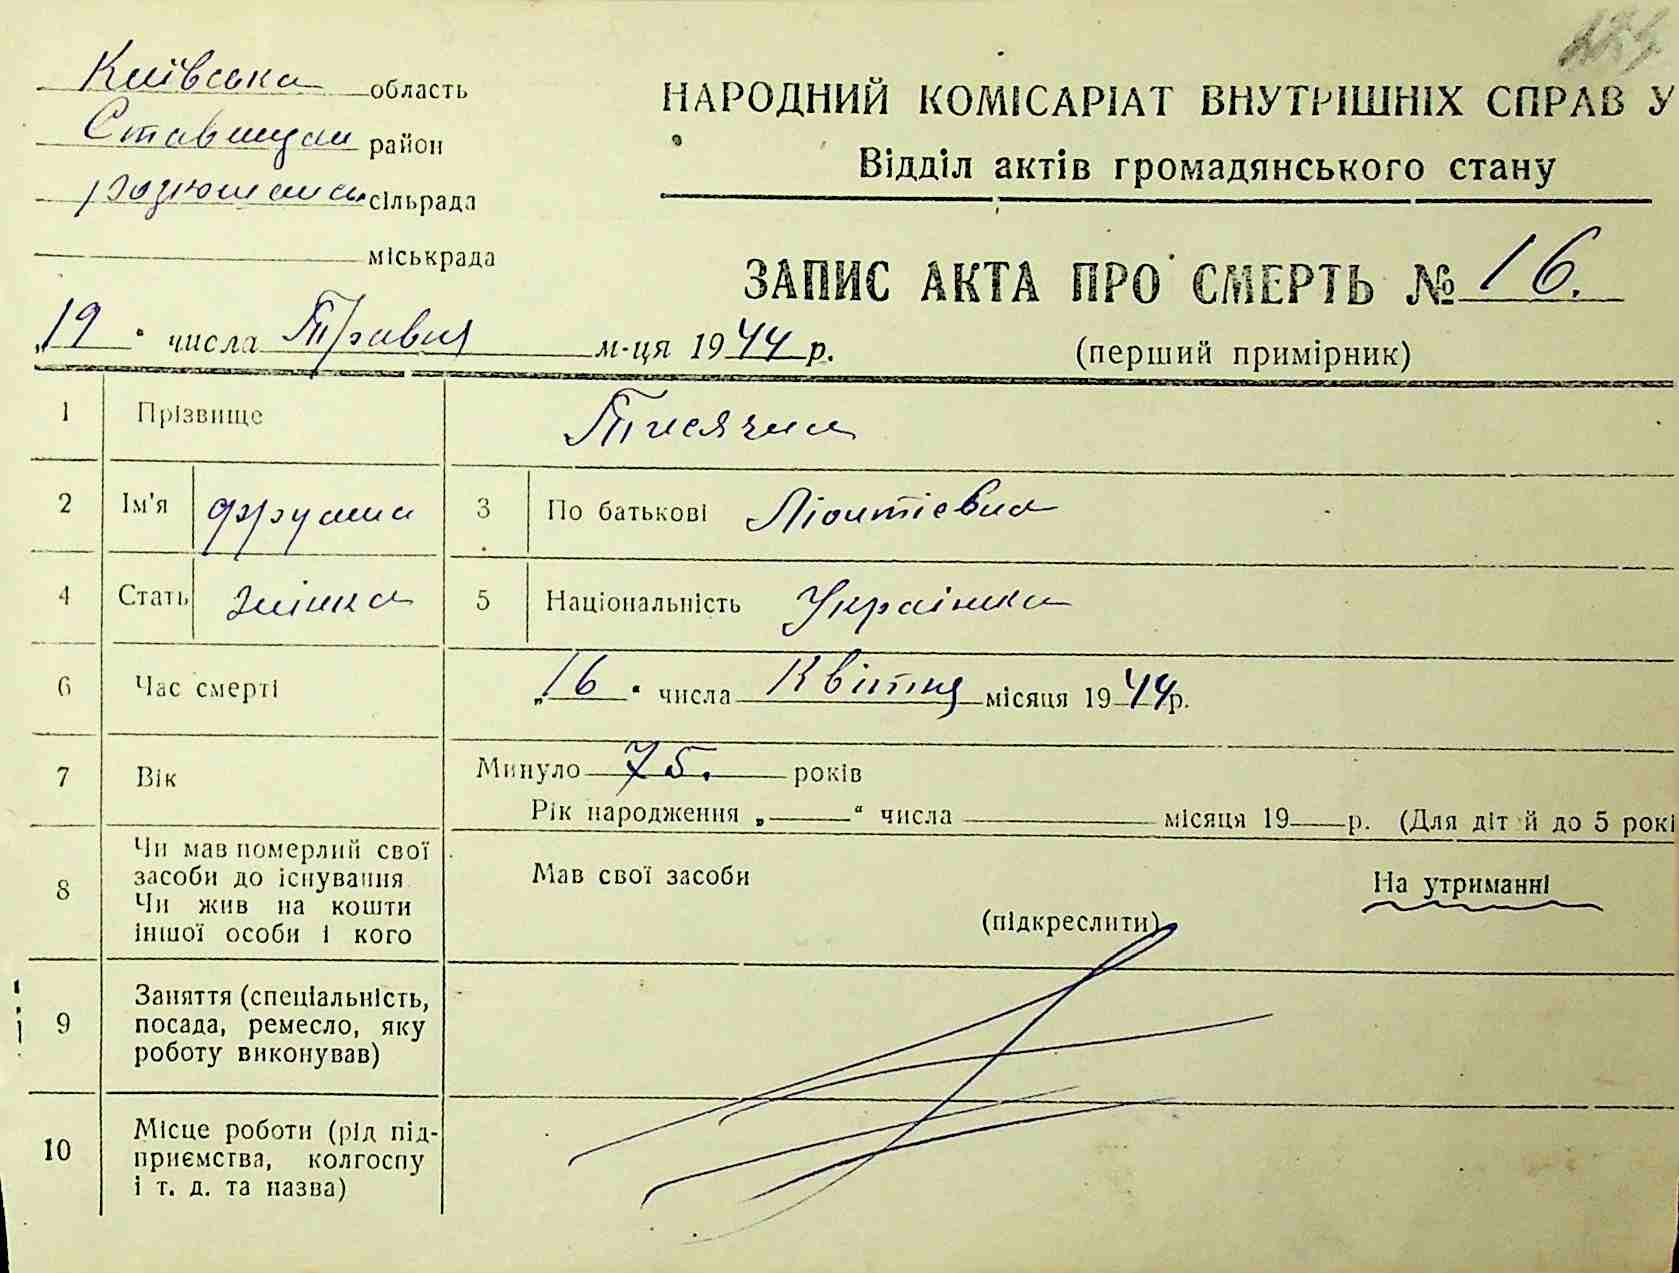 Київська область
НАРОДНИЙ КОМІСАРІАТ ВНУТРІШНІХ СПРАВ У
район
Відділ актів громадянського стану
сільрада
міськрада
ЗАПИС АКТА ПРО СМЕРТЬ № 16.
„19“ числа Травня м-ця 1944 р.
(перший примірник)
1 Прізвище
2 Ім'я 3 По батькові Ліонтієвна
4 Стать жінка 5 Національність Українка
6 Час смерті „16“ числа Квітня місяця 1944р.
7 Вік Минуло 75. років
Рік народження „ “ числа місяця 19 р. (Для дітей до 5 рокі
8 Чи мав померлий свої
засоби до існування
Чи жив на кошти
іншої особи і кого
Мав свої засоби На утриманні
(підкреслити)
9 Заняття (спеціальність,
посада, ремесло, яку
роботу виконував)
10 Місце роботи (рід під-
приємства, колгоспу
і т. д. та назва)